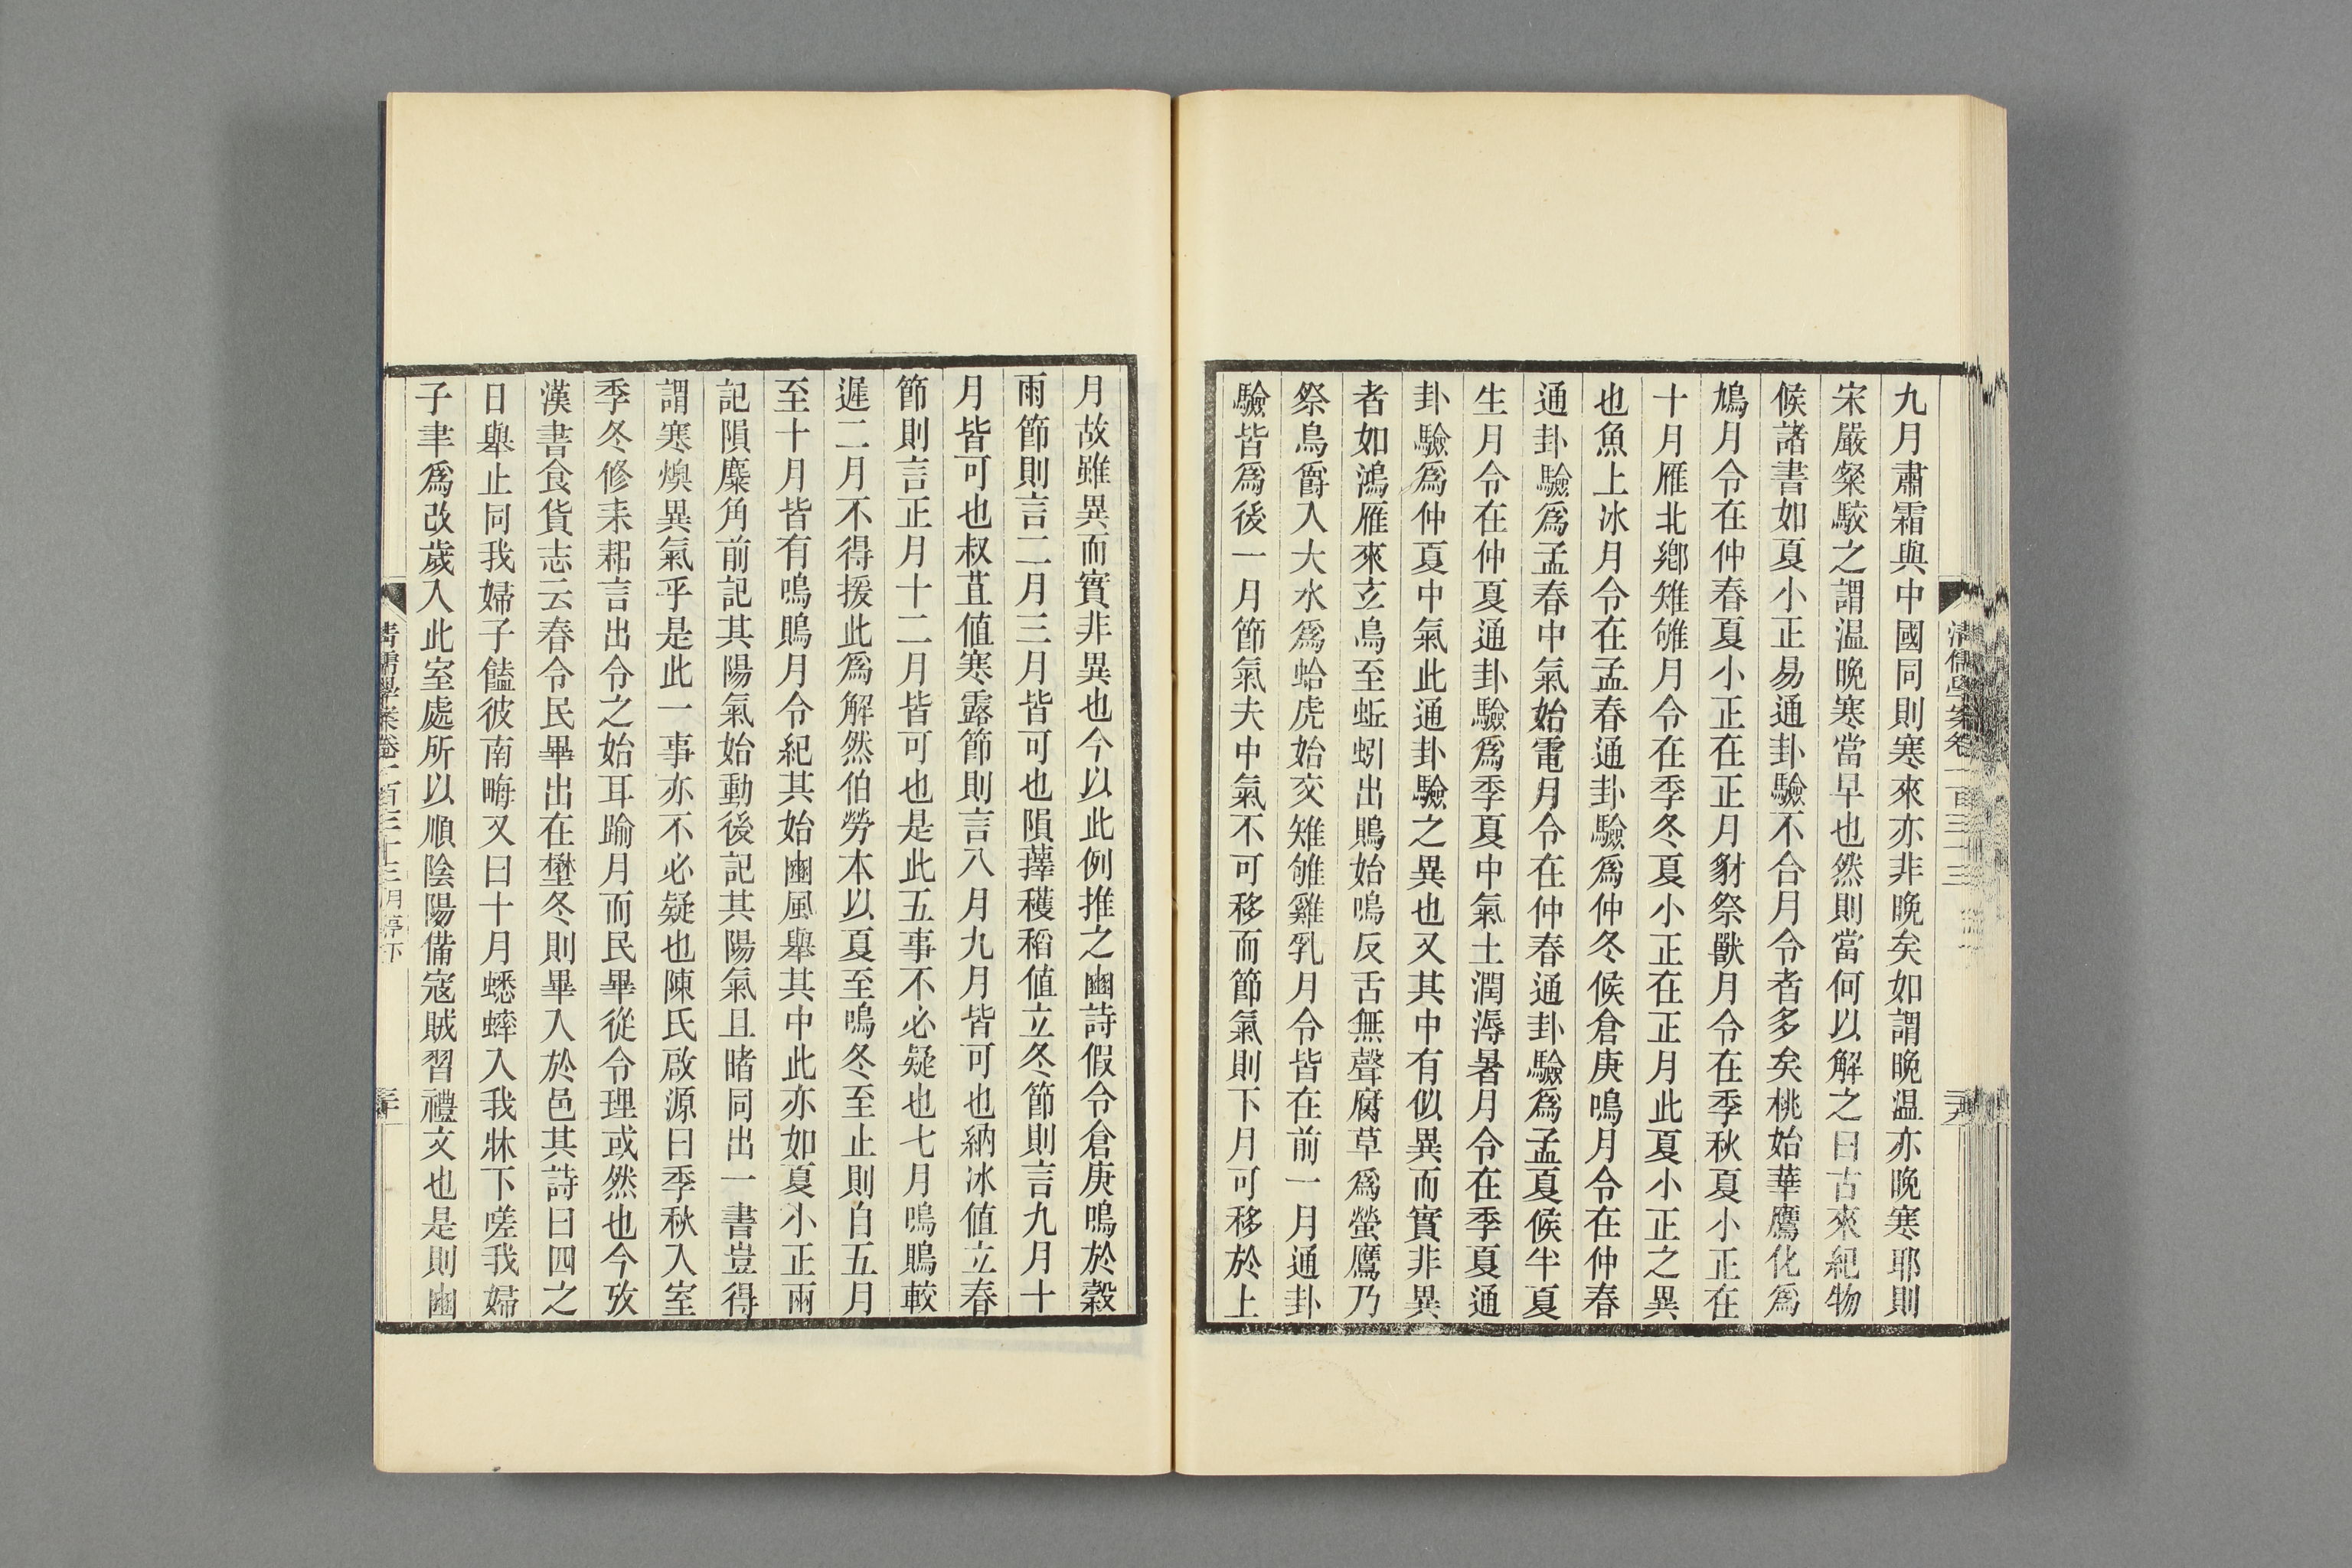 清儒學案卷一百三十三
九月肅霜與中國同則寒來亦非晚矣如謂晚温亦晚寒耶則
宋嚴粲駮之謂温晚寒當早也然則當何以解之曰古來紀物
候諸書如夏小正易通卦驗不合月令者多矣桃始華鷹化爲
鳩月令在仲春夏小正在正月豺祭獸月令在季秋夏小正在
十月雁北鄉雉雊月令在季冬夏小正在正月此夏小正之異
也魚上冰月令在孟春通卦驗爲仲冬候倉庚鳴月令在仲春
通卦驗爲孟春中氣始電月令在仲春通卦驗爲孟夏候半夏
生月令在仲夏通卦驗爲季夏中氣土潤溽暑月令在季夏通
卦驗爲仲夏中氣此通卦驗之異也又其中有似異而實非異
者如鴻雁來玄鳥至蚯蚓出鵙始鳴反舌無聲腐草爲螢鷹乃
祭鳥爵入大水爲蛤虎始交雉雊雞乳月令皆在前一月通卦
驗皆爲後一月節氣夫中氣不可移而節氣則下月可移於上
月故雖異而實非異也今以此例推之豳詩假令倉庚鳴於穀
雨節則言二月三月皆可也隕蘀穫稻值立冬節則言九月十
月皆可也叔苴值寒露節則言八月九月皆可也納冰值立春
節則言正月十二月皆可也是此五事不必疑也七月鳴鵙較
遲二月不得援此爲解然伯勞本以夏至鳴冬至止則自五月
至十月皆有鳴鵙月令紀其始豳風舉其中此亦如夏小正兩
記隕麋角前記其陽氣始動後記其陽氣且睹同出一書豈得
謂寒燠異氣乎是此一事亦不必疑也陳氏啟源曰季秋入室
季冬修耒耜言出令之始耳踰月而民畢從令理或然也今攷
漢書食貨志云春令民畢出在壄冬則畢入於邑其詩曰四之
日舉止同我婦子饁彼南畮又曰十月蟋蟀入我牀下嗟我婦
子聿爲改歲入此室處所以順陰陽備寇賊習禮文也是則豳
清儒學案卷一百三十三月亭下